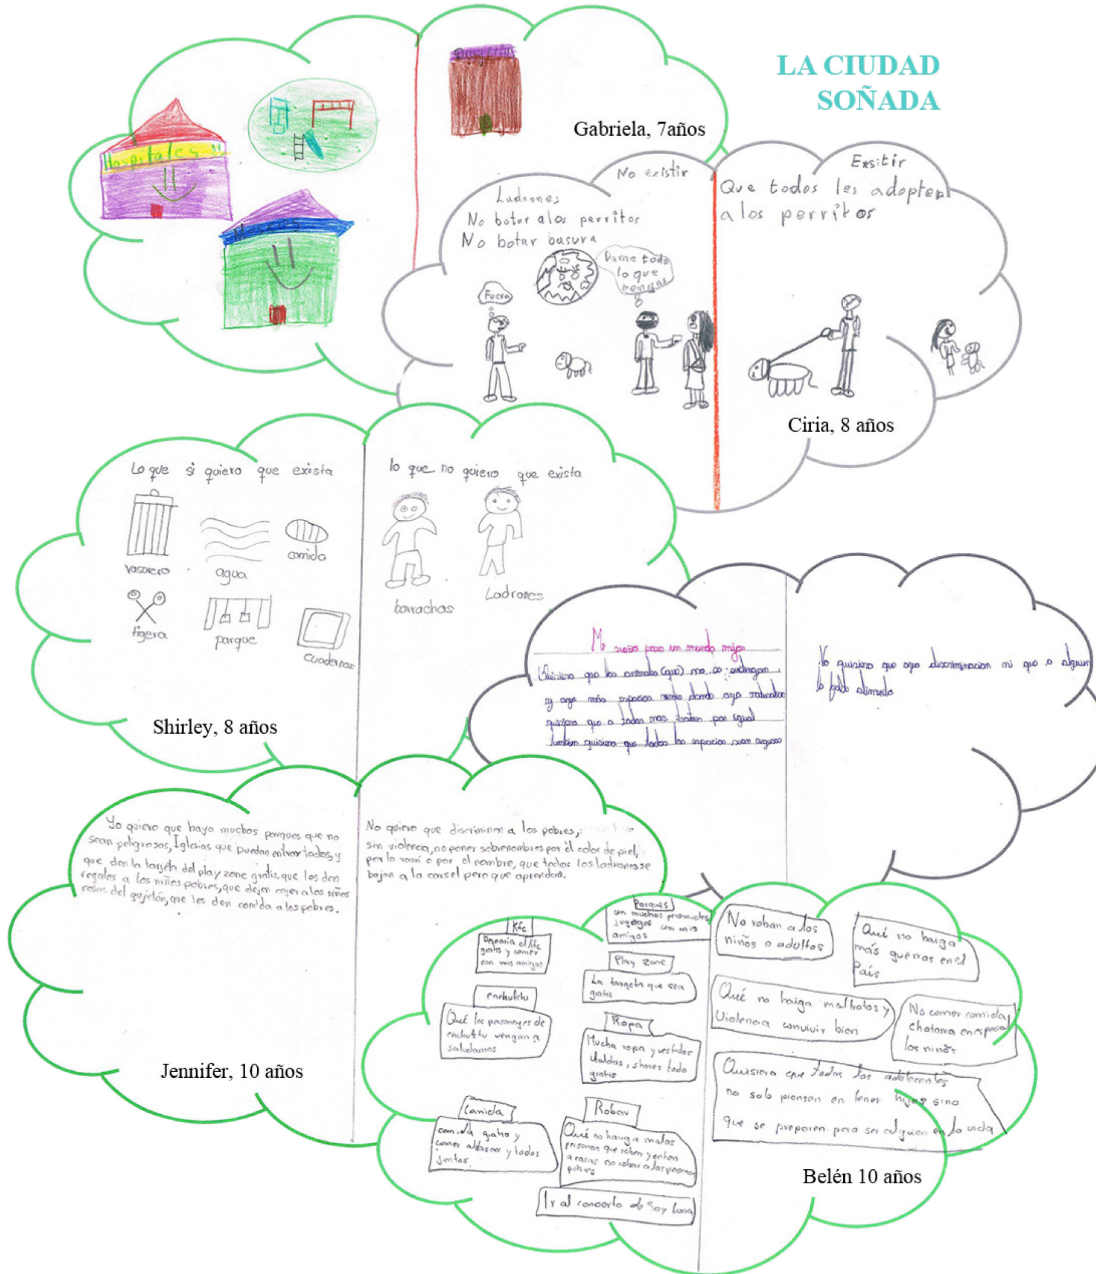 LA CIUDAD
SOÑADA
Hospitales
Museos
Gabriela, 7años
No existir
Ladrones
No botar a los perritos
No botar basura
Fuera
Dame todo
lo que
tengas
Exsitir
Que todos les adopten
a los perritos
Ciria, 8 años
Lo que si quiero que exista
vasurero
agua
comida
tigera
parque
cuadernos
lo que no quiero que exista
borrachos
Ladrones
Shirley, 8 años
Mi sueño para un mundo mejor
Quisiera que los animales (que) no se extingan
y aya más espacios verdes donde aya naturaleza
quisiera que a todos nos traten por igual
tambien quisiera que todos los espacios sean seguros
No quisiera que aya discriminacion ni que a alguien
le falte alimento
Yo quiero que haya muchos parques que no
sean peligrosos, Iglesias que puedan entrar todos, y
que den la targeta del play zone gratis, que les den
regalos a los niños pobres, que dejen coger a los niños
cosas del
que les den comida a los pobres.
No quiero que discriminen a los pobres,
sin violencia, no poner sobrenombres por el color de piel,
por la o por el nombre, que todos los ladrones se
bajan a la carsel pero que aprendan.
Jennifer, 10 años
Kfc
el kfc
gratis y comer
con mis amigos
enchufetv
Qué los personages de
enchufetv vengan a
saludarnos
Comida
comida gratis y
comer y todos
juntos
Parques
con muchos
juegos con mis
amigos
Play zone
La targeta que sea
gratis
Ropa
Mucha ropa y vestidos
faldas, shores todo
gratis
Roban
Qué no hayga malas
personas que roben y entren
a casas no roban a las personas
pobres
Ir al concierto de Soy Luna
No roban a los
niños o adultos
Qué no haiga
más guerras en el
País
Qué no haiga maltratos y
Violencia convivir bien
No comer comida
chatarra en especial
los niños
Quisiera que todos los
no solo piensan en tener hijos sino
que se preparen para ser alguien en la vida
Belén 10 años